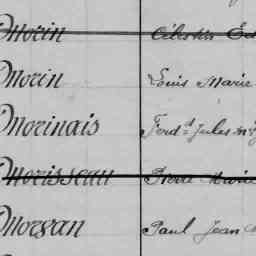 Morin Célestin
Morin Louis Marie
Morinais Ferd^d Jules
Morisseau Pierre Marie
Morgan Paul Jean